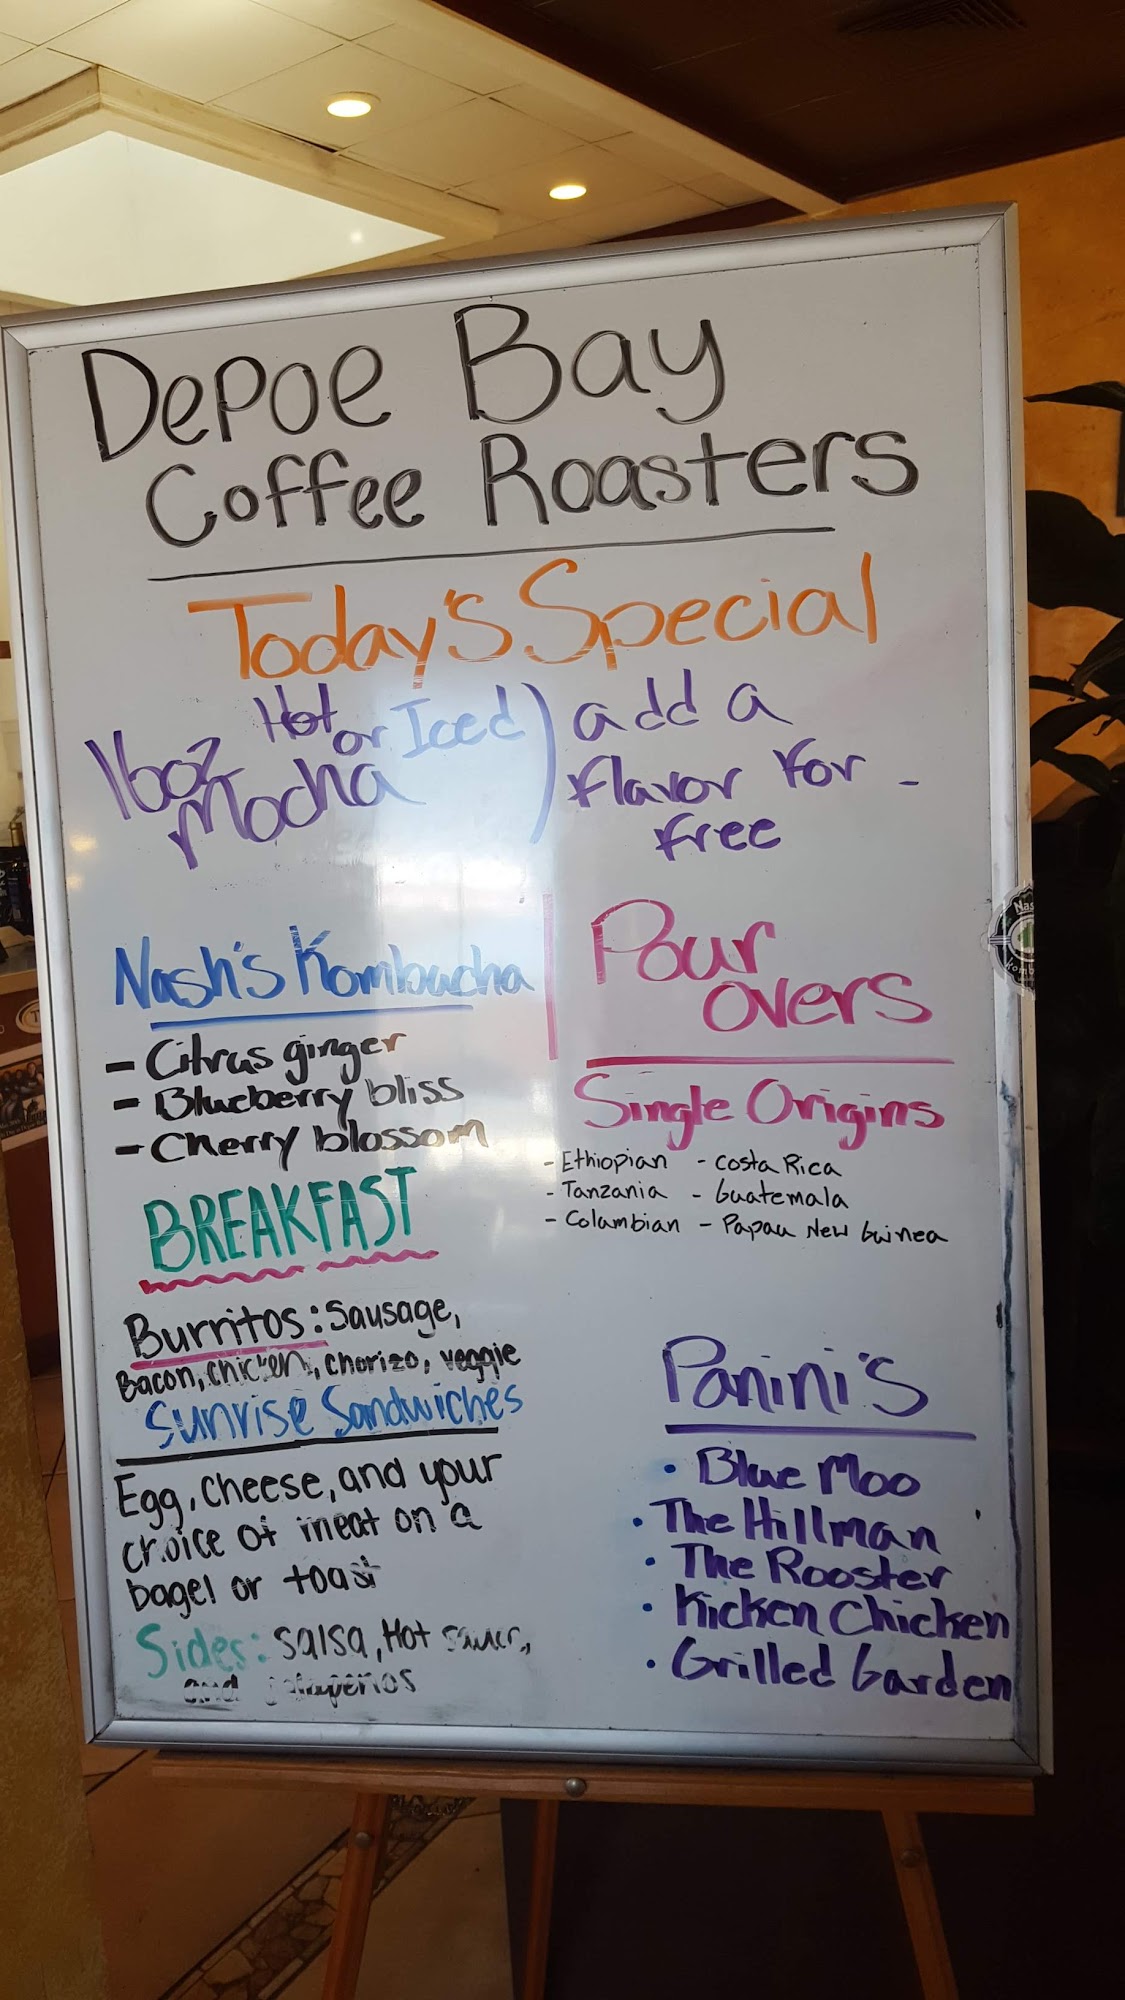 Depoe Bay
Coffee Roasters
Today's Special
16oz Hot or Iced
Mocha
add a
flavor for -
free
Nash's Kombucha
- Citrus ginger
- Blueberry bliss
- Cherry blossom
Pour
overs
Single Origins
- Ethiopian - Costa Rica
- Tanzania - Guatemala
- Colambian - Papau New Guinea
BREAKFAST
Burritos: Sausage,
Bacon, chicken, chorizo, veggie
Sunrise Sandwiches
Egg, cheese, and your
choice of meat on a
bagel or toast
Sides: Salsa, Hot sauce,
and jalapenos
Panini's
• Blue Moo
• The Hillman
• The Rooster
• Kicken Chicken
• Grilled Garden
Nas